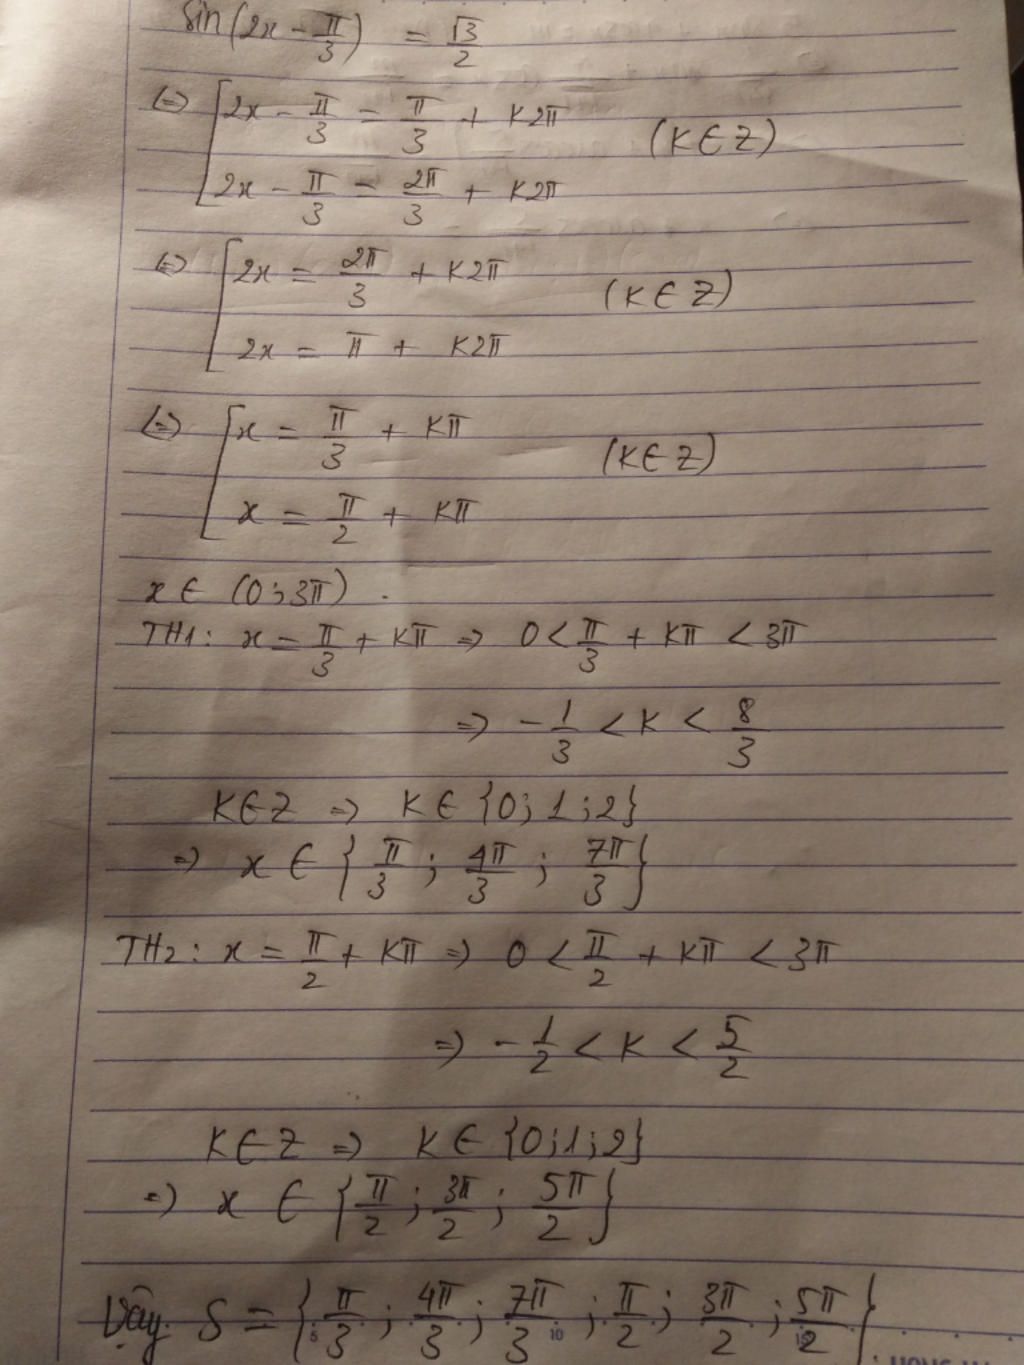 sin(2x - π/3) = √3/2
(=) [2x - π/3 = π/3 + K2π
2x - π/3 = 2π/3 + K2π (K∈Z)
(=) [2x = 2π/3 + K2π
2x = π + K2π (K∈Z)
(=) [x = π/3 + Kπ
x = π/2 + Kπ (K∈Z)
x ∈ (0;3π).
TH1: x = π/3 + Kπ => 0 < π/3 + Kπ < 3π
=> -1/3 < K < 8/3
K∈Z => K ∈ {0; 1; 2}
=> x ∈ {π/3; 4π/3; 7π/3}
TH2: x = π/2 + Kπ => 0 < π/2 + Kπ < 3π
=> -1/2 < K < 5/2
K∈Z => K ∈ {0;1;2}
=> x ∈ {π/2; 3π/2; 5π/2}
Vậy S = {π/3; 4π/3; 7π/3; π/2; 3π/2; 5π/2}
5 10